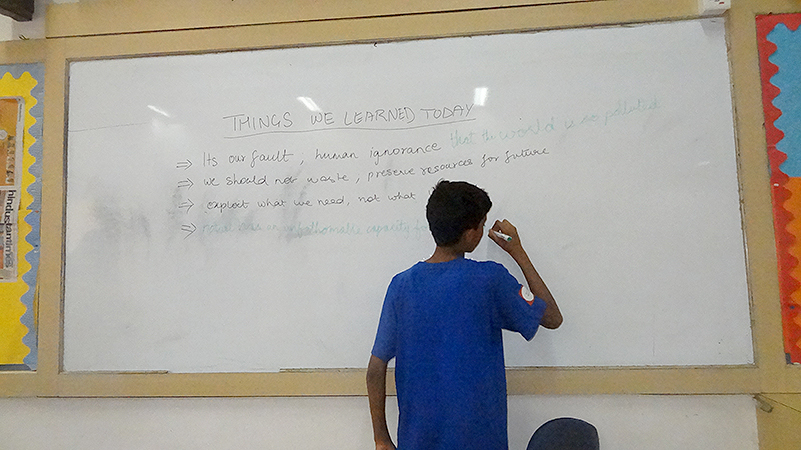 THINGS WE LEARNED TODAY
⇒ Its our fault, human ignorance that the world is so polluted
⇒ we should not waste, preserve resources for future
⇒ exploit what we need, not what
⇒ capacity
hindustantimes